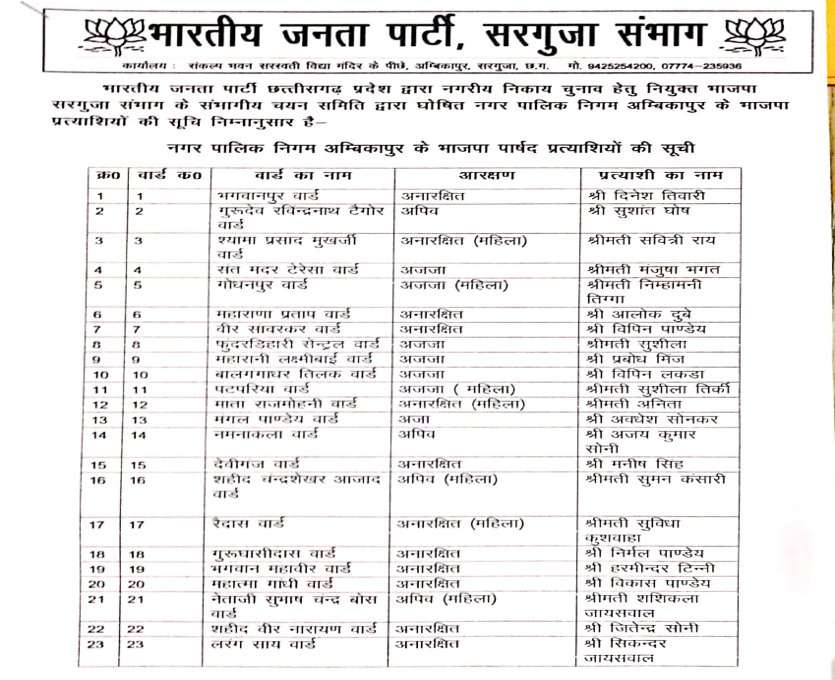 भारतीय जनता पार्टी, सरगुजा संभाग
कार्यालय : संकल्प भवन सरस्वती विद्या मंदिर के पीछे, अम्बिकापुर, सरगुजा, छ.ग. मो. 9425254200, 07774-235936
भारतीय जनता पार्टी छत्तीसगढ़ प्रदेश द्वारा नगरीय निकाय चुनाव हेतु नियुक्त भाजपा
सरगुजा संभाग के संभागीय चयन समिति द्वारा घोषित नगर पालिक निगम अम्बिकापुर के भाजपा
प्रत्याशियों की सूचि निम्नानुसार है–
नगर पालिक निगम अम्बिकापुर के भाजपा पार्षद प्रत्याशियों की सूची
क्र0 वार्ड क0 वार्ड का नाम आरक्षण प्रत्याशी का नाम
1 1 भगवानपुर वार्ड अनारक्षित श्री दिनेश तिवारी
2 2 गुरूदेव रविन्द्रनाथ टैगोर अपिव श्री सुशांत घोष
वार्ड
3 3 श्यामा प्रसाद मुखर्जी अनारक्षित (महिला) श्रीमती सवित्री राय
वार्ड
4 4 संत मदर टेरेसा वार्ड अजजा श्रीमती मंजुषा भगत
5 5 गोधनपुर वार्ड अजजा (महिला) श्रीमती निम्हामनी
तिग्गा
6 6 महाराणा प्रताप वार्ड अनारक्षित श्री आलोक दुबे
7 7 वीर सावरकर वार्ड अनारक्षित श्री विपिन पाण्डेय
8 8 फुंदरडिहारी सेन्ट्रल वार्ड अजजा श्रीमती सुशीला
9 9 महारानी लक्ष्मीबाई वार्ड अजजा श्री प्रबोध मिंज
10 10 बालगंगाधर तिलक वार्ड अजजा श्री विपिन लकडा
11 11 पटपरिया वार्ड अजजा ( महिला) श्रीमती सुशीला तिर्की
12 12 माता राजमोहनी वार्ड अनारक्षित (महिला) श्रीमती अनिता
13 13 मंगल पाण्डेय वार्ड अजा श्री अवधेश सोनकर
14 14 नमनाकला वार्ड अपिव श्री अजय कुमार
सोनी
15 15 देवीगंज वार्ड अनारक्षित श्री मनीष सिंह
16 16 शहीद चन्द्रशेखर आजाद अपिव (महिला) श्रीमती सुमन कंसारी
वार्ड
17 17 रैदास वार्ड अनारक्षित (महिला) श्रीमती सुविधा
कुशवाहा
18 18 गुरूघासीदास वार्ड अनारक्षित श्री निर्मल पाण्डेय
19 19 भगवान महावीर वार्ड अनारक्षित श्री हरमीन्दर टिन्नी
20 20 महात्मा गांधी वार्ड अनारक्षित श्री विकास पाण्डेय
21 21 नेताजी सुभाष चन्द्र बोस अपिव (महिला) श्रीमती शशिकला
वार्ड जायसवाल
22 22 शहीद वीर नारायण वार्ड अनारक्षित श्री जितेन्द्र सोनी
23 23 लरंग साय वार्ड अनारक्षित श्री सिकन्दर
जायसवाल